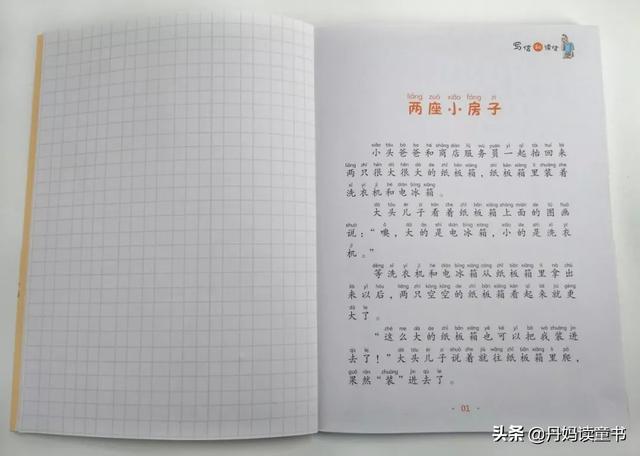 写信和读信
liǎng zuò xiǎo fáng zi
两座小房子
小头爸爸和商店服务员一起抬回来
两只很大很大的纸板箱,纸板箱里装着
洗衣机和电冰箱。
大头儿子看着纸板箱上面的图画
说:“噢,大的是电冰箱,小的是洗衣
机。”
等洗衣机和电冰箱从纸板箱里拿出
来以后,两只空空的纸板箱看起来就更
大了。
“这么大的纸板箱也可以把我装进
去了!”大头儿子说着就往纸板箱里爬,
果然“装”进去了。
· 01 ·
头条 @丹妈读童书